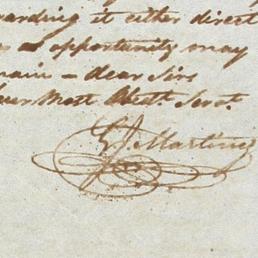 warding it either direct
as opportunity may
main – dear Sirs
your Most Obedt. Servt.